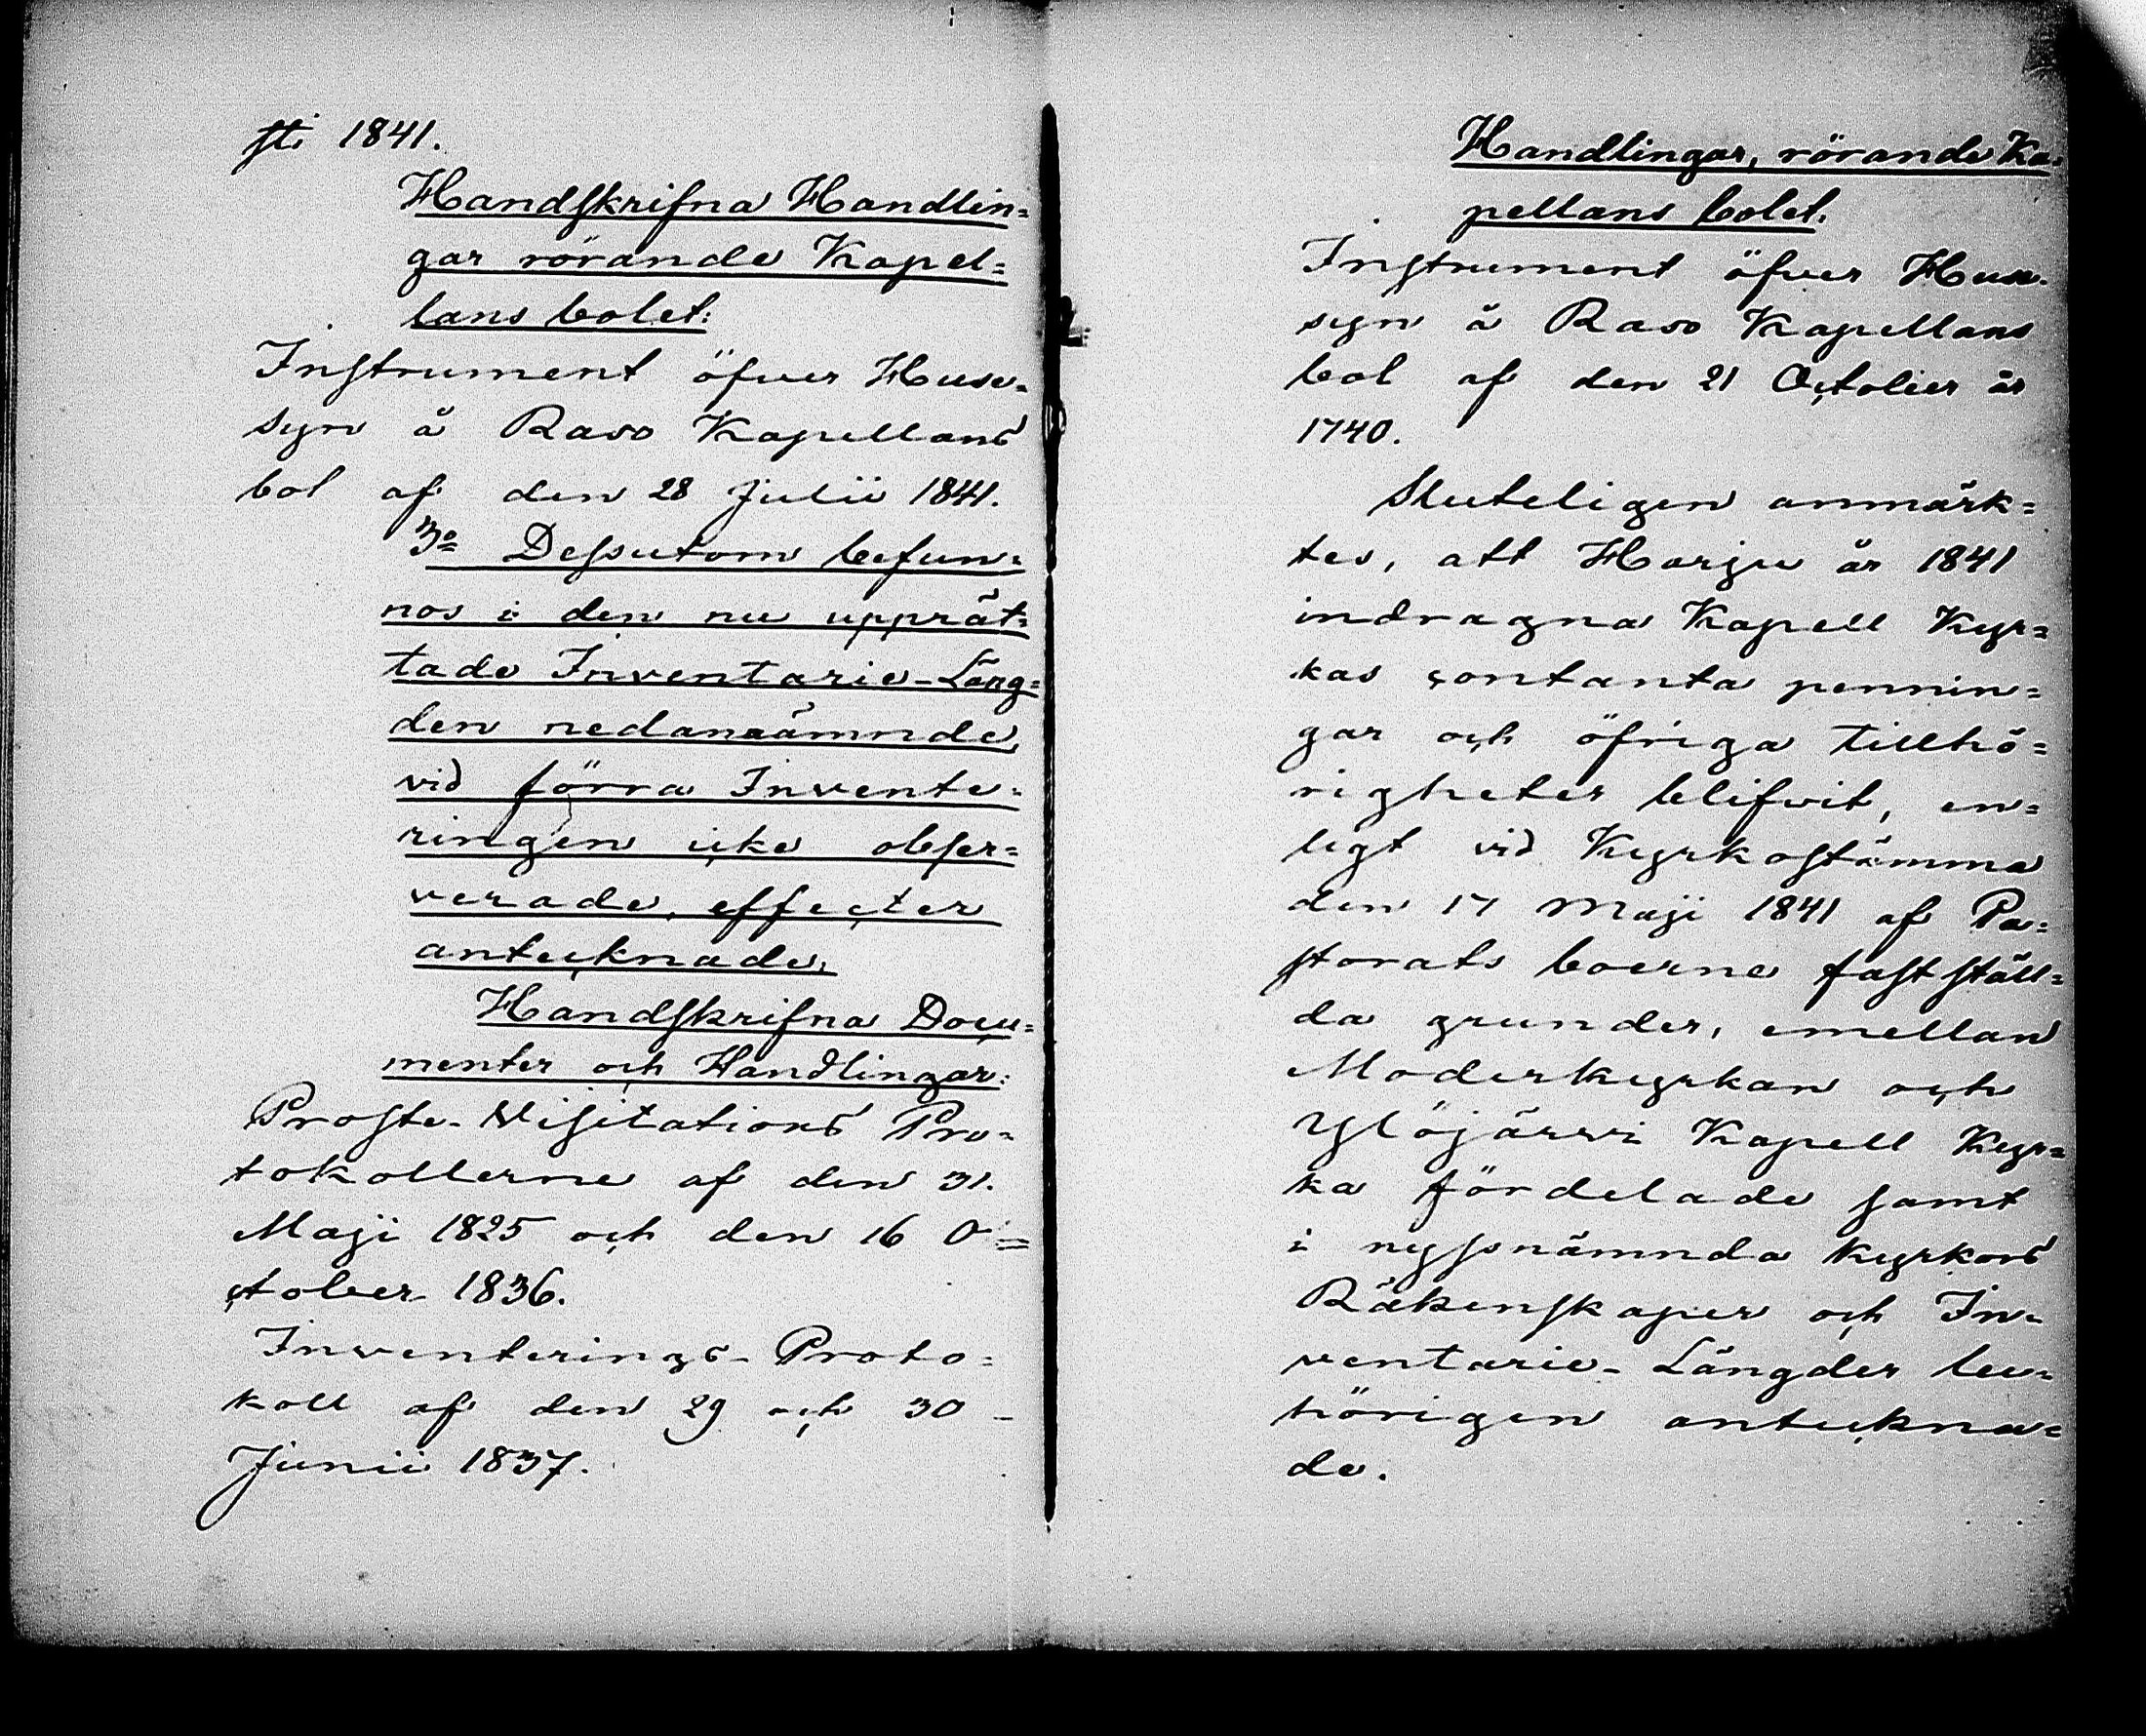 sti 1841.
Handskrifna Handlin=
gar rörande Kapel=
lans bolet:
Instrument öfver Huse-
syn å Raso Kapellans
bol af den 28 Julii 1841.
3o Dessutom befun=
nos i den nu upprät=
tade Inventarie-Läng=
den nedannämnde,
vid förra Invente=
ringen icke obser=
verade, effecter
antecknade,
Handskrifna Docu=
menter och Handlingar:
Proste-Visitations Pro-
tokollerne af den 31.
Maji 1825 och den 16 O=
ctober 1836.
Inventerings-Proto=
koll af den 29 och 30
Junii 1837.
Handlingar, rörande Ka-
pellans bolet.
Instrument öfver Huse-
syn å Raso Kapellans
bol af den 21 October år
1740.
Sluteligen anmärk=
tes, att Harju år 1841
indragna Kapell Kyr=
kas contanta pennin=
gar och öfriga tillhö=
righeter blifvit, en=
ligt vid Kyrkostämma
den 17 Maji 1841 af Pa=
storats boerne fastställ=
da grunder, emellan
Moderkyrkan och
Ylöjärvi Kapell Kyr=
ka fördelade samt
i nyssnämnda kyrkors
Räkenskaper och In=
ventarie-Längder be=
hörigen anteckna=
de.